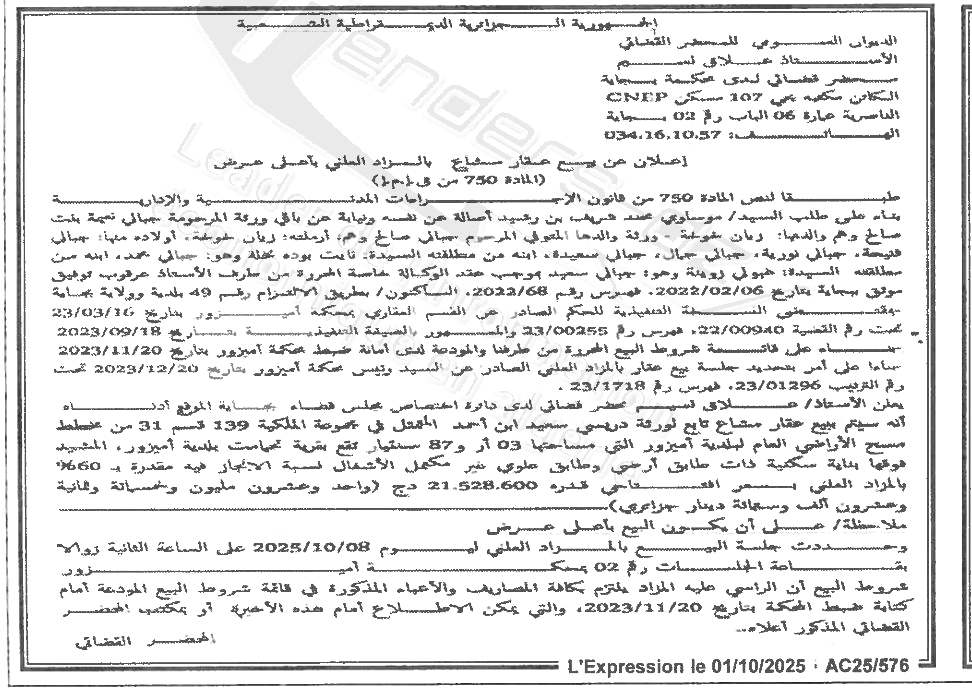 الجمهورية الجزائرية الديمقراطية الشعبية
الديوان العمومي للمحضر القضائي
الأستاذ عـلاق نسيم
محضر قضائي لدى محكمة بجاية
الكائن مكتبه بحي 107 مسكن CNEP
الناصرية عمارة 06 الباب رقم 02 بجاية
الهاتف: 034.16.10.57
إعلان عن بيع عقار مشاع بالمزاد العلني بأعلى عرض
(المادة 750 من ق.إ.م.إ)
طبقا لنص المادة 750 من قانون الإجراءات المدنية والإدارية
بناء على طلب السيد/ موساوي محمد شريف بن رشيد أصالة عن نفسه ونيابة عن باقي ورثة المرحومة جبالي نعيمة بنت
صالح وهم والدتها: زيان خوخة، ورثة والدها المتوفي المرحوم جبالي صالح وهم: أرملته: زيان خوخة، أولاده منها: جبالي
فتيحة، جبالي نورية، جبالي جمال، جبالي سعيدة، ابنه من مطلقته السيدة: نابت بوده نخلة وهو: جبالي محمد، ابنه من
مطلقته السيدة: وهو: جبالي سعيد بموجب عقد الوكالة خاصة المحررة من طرف الأستاذ عرقوب توفيق
موثق ببجاية بتاريخ 2022/02/06، فهرس رقم 2022/68، الساكنون/ بطريق الالتزام رقم 49 بلدية وولاية بجاية
بمقتضى النسخة التنفيذية للحكم الصادر عن القسم العقاري بمحكمة أميزور بتاريخ 23/03/16
تحت رقم القضية 22/00940، فهرس رقم 23/00255 والممهور بالصيغة التنفيذية بتاريخ 2023/09/18
بناء على قائمة شروط البيع المحررة من طرفنا والمودعة لدى أمانة ضبط محكمة أميزور بتاريخ 2023/11/20
بناءا على أمر بتحديد جلسة بيع عقار بالمزاد العلني الصادر عن السيد رئيس محكمة أميزور بتاريخ 2023/12/20 تحت
رقم الترتيب 23/01296، فهرس رقم 23/1718 .
يعلن الأستاذ/ عـلاق نسيم محضر قضائي لدى دائرة اختصاص مجلس قضاء بجاية الموقع أدناه
أنه سيتم بيع عقار مشاع تابع لورثة دريسي سعيد ابن أحمد المتمثل في مجموعة الملكية 139 قسم 31 من مخطط
مسح الأراضي العام لبلدية أميزور التي مساحتها 03 أر و87 سنتيار تقع بقرية بلدية أميزور، المشيد
فوقها بناية سكنية ذات طابق أرضي وطابق علوي غير مكتمل الأشغال نسبة الانجاز فيه مقدرة بـ 60%
بالمزاد العلني بسعر افتتاحي قدره 21.528.600 دج (واحد وعشرون مليون وخمسمائة وثمانية
وعشرون ألف وستمائة دينار جزائري)
ملاحظة/ على أن يكون البيع بأعلى عرض
وحددت جلسة البيع بالمزاد العلني ليوم 2025/10/08 على الساعة الثانية زوالا
بقاعة الجلسات رقم 02 بمحكمة أميزور
شروط البيع أن الراسي عليه المزاد يلتزم بكافة المصاريف والأعباء المذكورة في قائمة شروط البيع المودعة أمام
كتابة ضبط المحكمة بتاريخ 2023/11/20، والتي يمكن الاطلاع أمام هذه الأخيرة أو بمكتب المحضر
القضائي المذكور أعلاه.
المحضر القضائي
L'Expression le 01/10/2025 · AC25/576